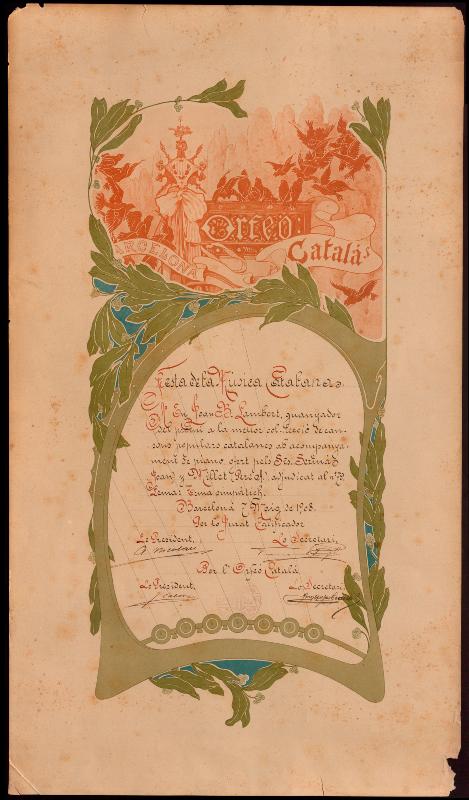 Orfeó
Català
BARCELONA
Festa de la Musica Catalana
Al Sr. En Joan B. Lambert, guanyador
del premi a la mellor col·lecció de can-
sons populars catalanes ab acompanya-
ment de piano, ofert pels Srs. Serinas
Joan) y Millet (Joseph), adjudicat al
Lema:
Barcelona 7 Maig de 1908.
Per lo Jurat Calificador
Lo President, Lo Secretari,
Per l'Orfeó Català
Lo President, Lo Secretari